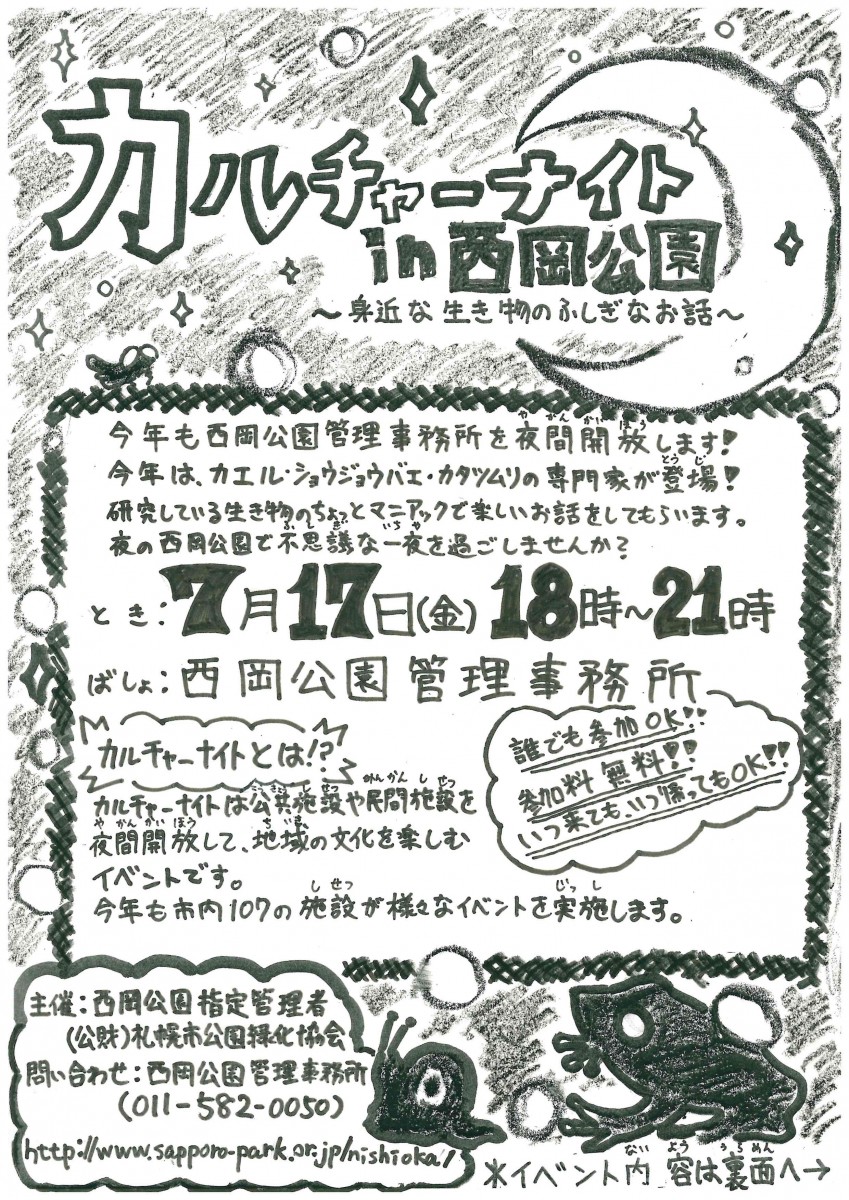 カルチャーナイト
in 西岡公園
～身近な生き物のふしぎなお話～
今年も西岡公園管理事務所を夜間開放します!
今年は、カエル・ショウジョウバエ・カタツムリの専門家が登場!
研究している生き物のちょっとマニアックで楽しいお話をしてもらいます。
夜の西岡公園で不思議な一夜を過ごしませんか?
とき:7月17日(金) 18時~21時
ばしょ:西岡公園管理事務所
カルチャーナイトとは!?
カルチャーナイトは公共施設や民間施設を
夜間開放して、地域の文化を楽しむ
イベントです。
今年も市内107の施設が様々なイベントを実施します。
誰でも参加OK!!
参加料 無料!!
いつ来ても、いつ帰ってもOK!!
主催:西岡公園指定管理者
(公財)札幌市公園緑化協会
問い合わせ:西岡公園管理事務所
(011-582-0050)
http://www.sapporo-park.or.jp/nishioka/
※イベント内容は裏面へ→